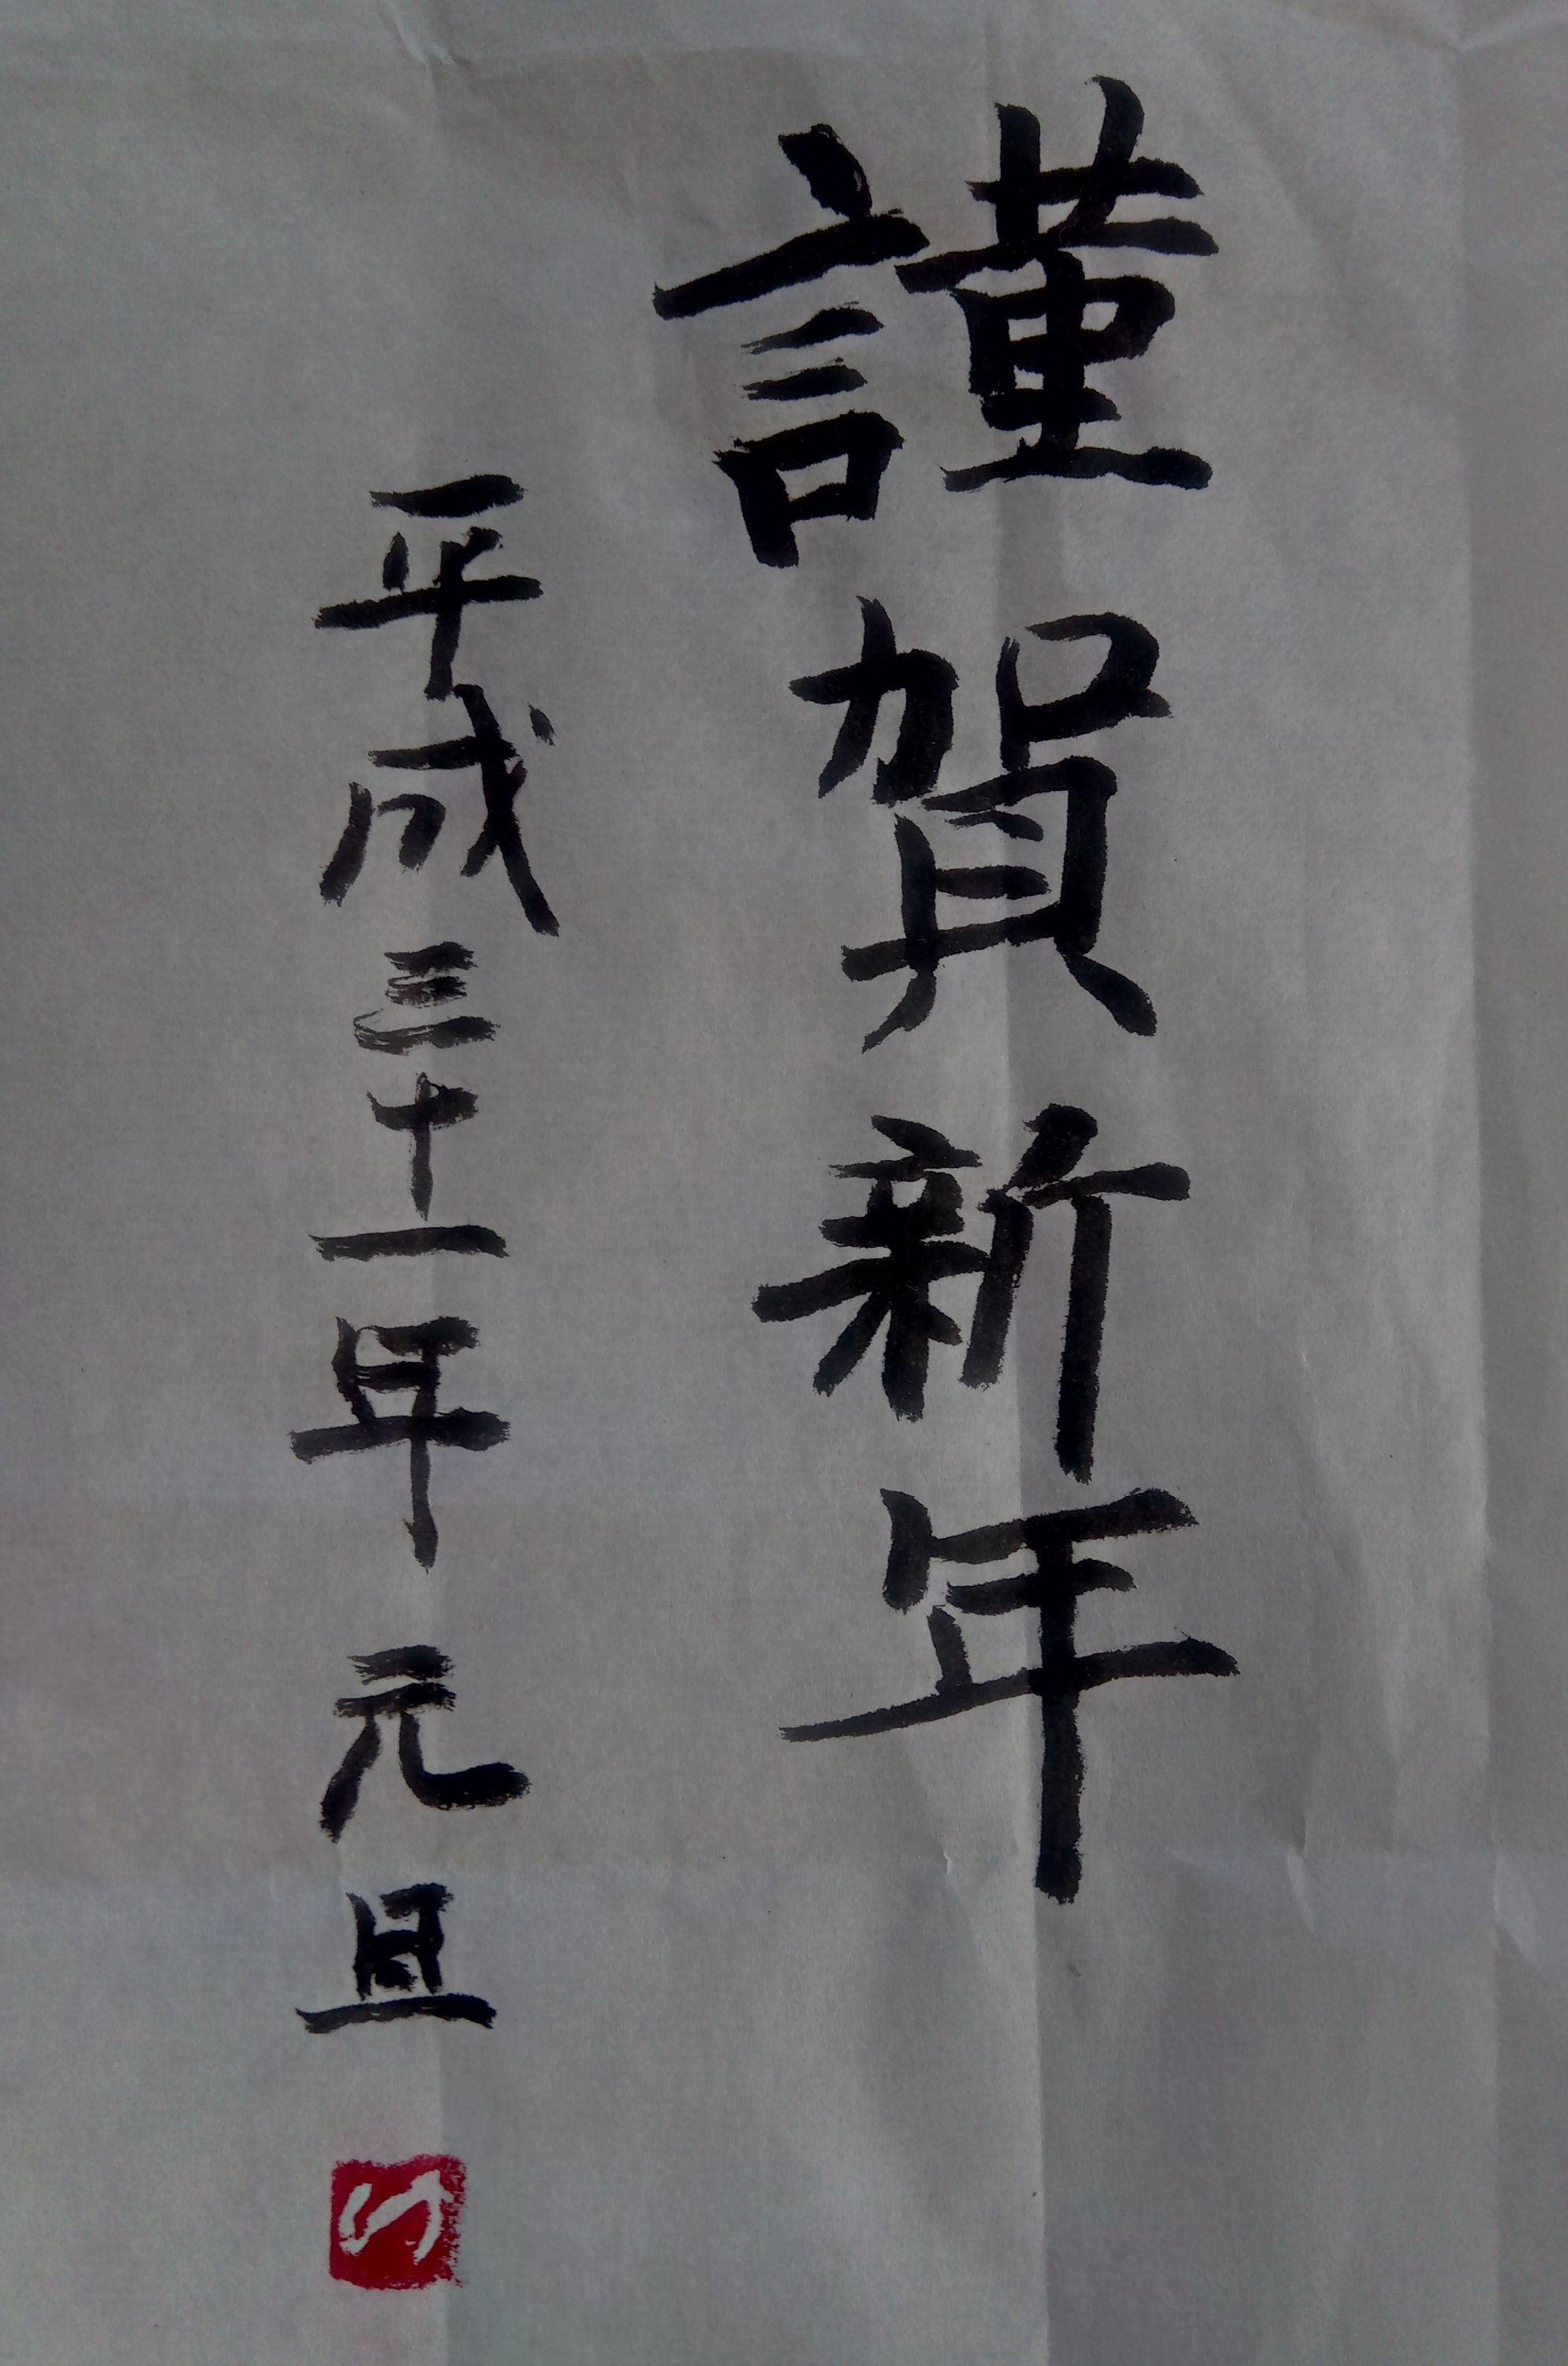 謹賀新年
平成三十一年 元旦